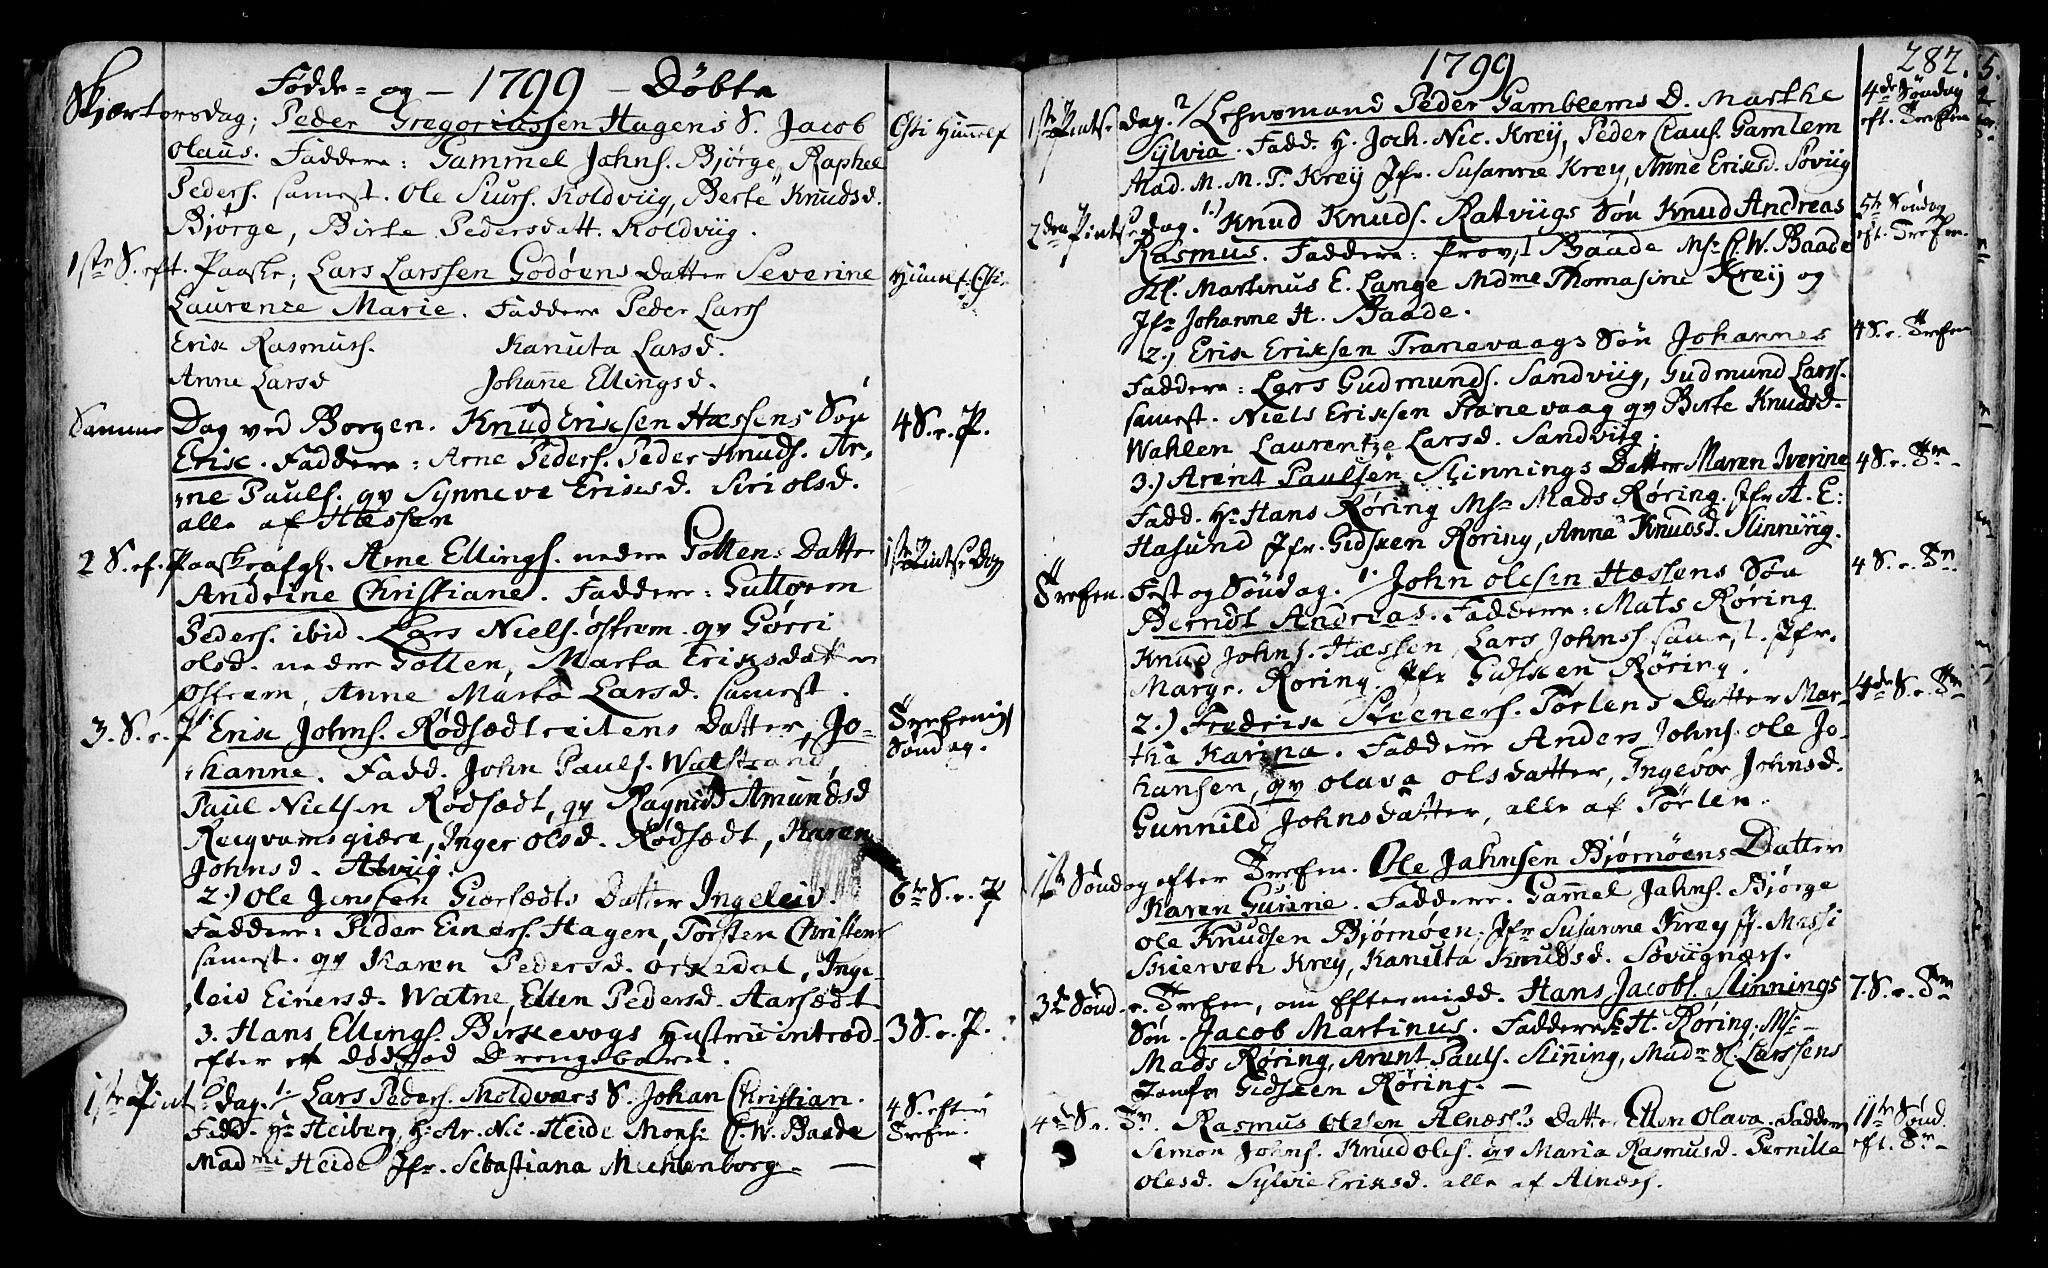 Fødde- og - 1799 - Døbte
Skjærtorsdag; Peder Gregoriussen Hagens S. Jacob
Olaus. Faddere: Gammel Johns. Bjørge, Raphel
Peders. samest. Ole Siurs. Koldviig, Berte Knudsd.
Bjørge, Birte Pedersdatt. Koldviig.
Chri Himmelf
1ste S. eft. Paaske; Lars Larssen Godøens Datter Severine
Laurence Marie. Faddere Peder Larss
Erik Rasmuss. Kanuta Larsd.
Anne Larsd Johanne Ellingsd.
Himmelf. Chri.
Samme Dag ved Borgen. Knud Eriksen Hæssens Søn
Erik. Faddere: Arne Peders. Peder Knuds. Ar-
ne Pauls. qv Synneve Eriksd. Siri Olsd.
alle af Hæssen
4 S. e. P.
2 S. ef. Paaske afgl. Arne Ellings. nedre Gottens Datter
Andrine Christiane. Faddere: Guttorm
Peders. ibid. Lars Niels. Østrem. qv Gørri
Olsd. nedre Gotten, Marta Eriksdatter
Østrem, Anne Marta Larsd. samest.
1ste Pintse Dag
3. S. e. P Erik Johns. Rødsædtreitens Datter, Jo-
hanne. Fadd. John Pauls. Watstrand,
Paul Nielsen Rødsædt, qv Ragnild Amundsd
Reqvamsgjære, Inger Olsd. Rødsædt, Karen
Johnsd. Alviig.
Trefenig
Søndag.
2.) Ole Jenssen Giørsædts Datter Ingeleid.
Faddere: Peder Einers. Hagen, Torsten Christens
samest. qv Karen Pedersd. Orkedal, Inge-
leid Einersd. Watne, Ellen Pedersd. Aarsædt
6te S. e. P
3. Hans Ellings. Birkevogs Hustrue introd.
efter et dødfød Drengebarn.
3 S. e. P.
1ste Pintsedag. 1. Lars Peders. Moldværs S. Johan Christian.
Fadd. Hr Heiberg, H. Ar. Nic. Heide Mons: C. W. Baade
Madme Heide Jfr. Sebastiana Mechlenborg. —
4 S. efter
Trefen.
1799
282.
1ste Pintse dag. 2/ Lehnsmand Peder Gamleems D. Marthe
Sylvia. Fadd. H. Joch. Nic. Kreij, Peder Claus. Gamlem
Mad. M. M. P. Kreij Jfr. Susanne Kreij, Anne Eriksd. Søviig
4de Søndag
eft. Trefen
2den Pintsedag. 1.) Knud Knuds. Ratviigs Søn Knud Andreas
Rasmus. Faddere: Prov. I Baade Msr C. W. Baade
Kl. Martinus E. Lange Mdme Thomasine Kreij og
Jfr Johanne H. Baade.
5te Søndag
eft. Trefen.
2.) Erik Eriksen Tranevaags Søn Johannes
Faddere: Lars Gudmunds. Sandviig, Gudmund Larss.
samest. Niels Eriksen Tranevaag qv Birte Knudsd.
Wahlen Laurentze Larsd. Sandviig.
4 S. e. Trefen
3.) Arent Paulsen Slinnings Datter Maren Iverine
Fadd. Hr Hans Røring Msr Mads Røring. Jfr. A. E:
Hasund Jfr. Gidsken Røring, Anne Knudsd. Slinniig.
4 S. e. Trn
Trefen. Fest og Søndag. 1. John Olesen Hæssens Søn
Berndt Andreas. Faddere: Mats Røring
Knud Johns. Hæssen, Lars Johnss samest. Jfr.
Margr. Røring Jfr Gidsken Røring.
4 S. e. Trn.
2.) Fredrik Steeners. Tørlens Datter Mar-
tha Karina. Faddere Anders Johns. Ole Jo-
hansen, qv Olava Olsdatter, Ingebor Johnsd.
Gunnild Johnsdatter, alle af Tørlen.
4de S. e. Trn
1ste Søndag efter Trefen. Ole Jahnsen Bjørnøens Datter
Karen Gurine. Faddere. Gammel Jahns. Bjørge
Ole Knudsen Bjørnøen, Jfr Susanne Kreij Jf. Massi
Skierven Kreij, Kanutta Knudsd. Søviignæs.
3de Sønd. e. Trefen, om Eftermidd. Hans Jacobs. Slinnings
Søn. Jacob Martinus. Faddere Hr H. Røring. Msr
Mads Røring, Arent Pauls. Slinning, Madme S. Larssens
Jomfr Gidsken Røring. —
7. S. e. Trn
4de S. e. Tr. Rasmus Olesen Alnæss's Datter Ellen Olava. Faddere
Simon Johns. Knud Oles. qv Maria Rasmusd. Pernille
Olesd. Sylvie Eriksd. alle af Alnæss.
11te Sønd.
eft. Trn